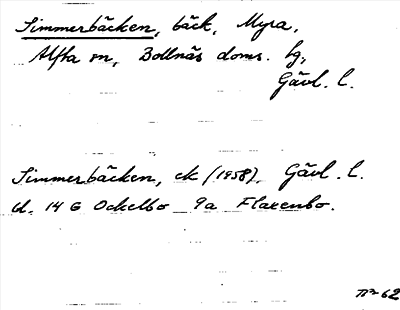 Simmerbäcken, bäck, Myra,
Alfta sn, Bollnäs doms. hg,
Gävl. l.
Simmerbäcken, ek (1958), Gävl. l.
bl. 14 G Ockelbo 9a Flaxenbo.
62